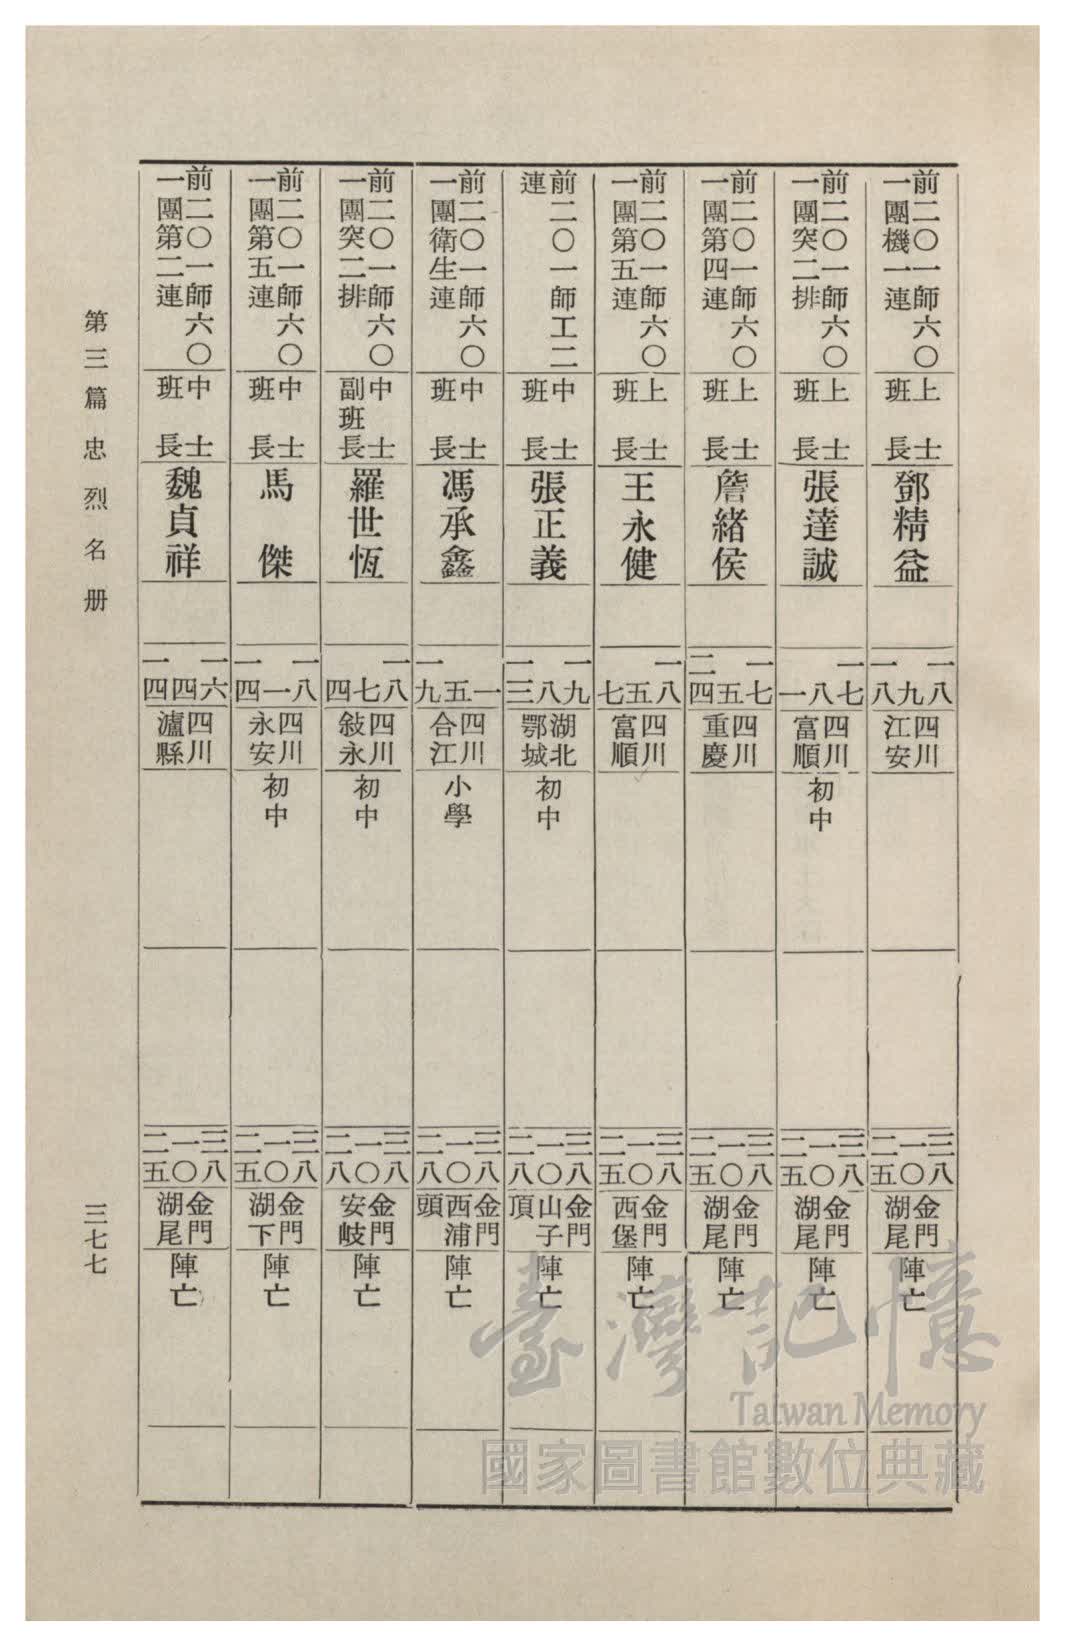 前二〇一師六〇
一團機一連
上士
班長
鄧精益
一八
九
一八
四川
江安
三八
一〇
二五
金門
湖尾
陣亡
前二〇一師六〇
一團突二排
上士
班長
張達誠
一七
八
一
四川
富順
初中
三八
一〇
二五
金門
湖尾
陣亡
前二〇一師六〇
一團第四連
上士
班長
詹緒侯
一七
五
二四
四川
重慶
三八
一〇
二五
金門
湖尾
陣亡
前二〇一師六〇
一團第五連
上士
班長
王永健
一八
五
七
四川
富順
三八
一〇
二五
金門
西堡
陣亡
前二〇一師工二
連
中士
班長
張正義
一九
八
一三
湖北
鄂城
初中
三八
一〇
二八
金門
山子
頂
陣亡
前二〇一師六〇
一團衛生連
中士
班長
馮承鑫
一
五
一九
四川
合江
小學
三八
一〇
二八
金門
西浦
頭
陣亡
前二〇一師六〇
一團突二排
中士
副班長
羅世恆
一八
七
四
四川
敍永
初中
三八
一〇
二八
金門
安岐
陣亡
前二〇一師六〇
一團第五連
中士
班長
馬傑
一八
一
一四
四川
永安
初中
三八
一〇
二五
金門
湖下
陣亡
前二〇一師六〇
一團第二連
中士
班長
魏貞祥
一六
四
一四
四川
瀘縣
三八
一〇
二五
金門
湖尾
陣亡
第三篇 忠烈名册
三七七
臺灣記憶
Taiwan Memory
國家圖書館數位典藏